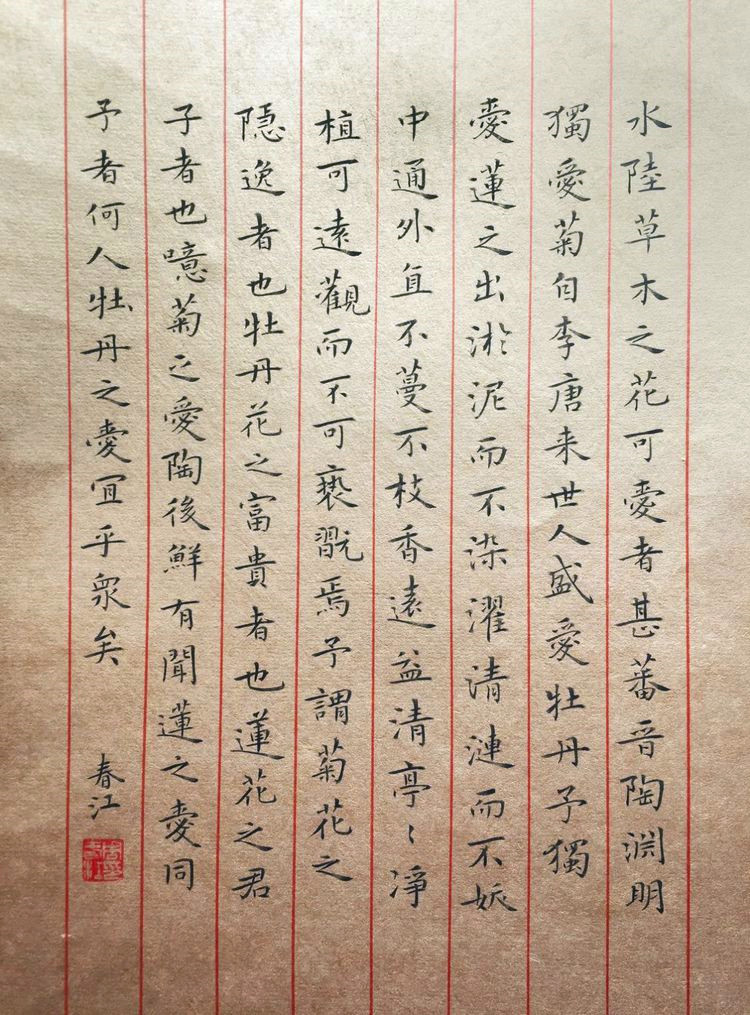 水陸草木之花可愛者甚蕃晋陶淵明
獨愛菊自李唐来世人盛愛牡丹予獨
愛蓮之出淤泥而不染濯清漣而不妖
中通外直不蔓不枝香遠益清亭〻凈
植可遠觀而不可褻翫焉予謂菊花之
隱逸者也牡丹花之富貴者也蓮花之君
子者也噫菊之愛陶後鮮有聞蓮之愛同
予者何人牡丹之愛宜乎衆矣
春江